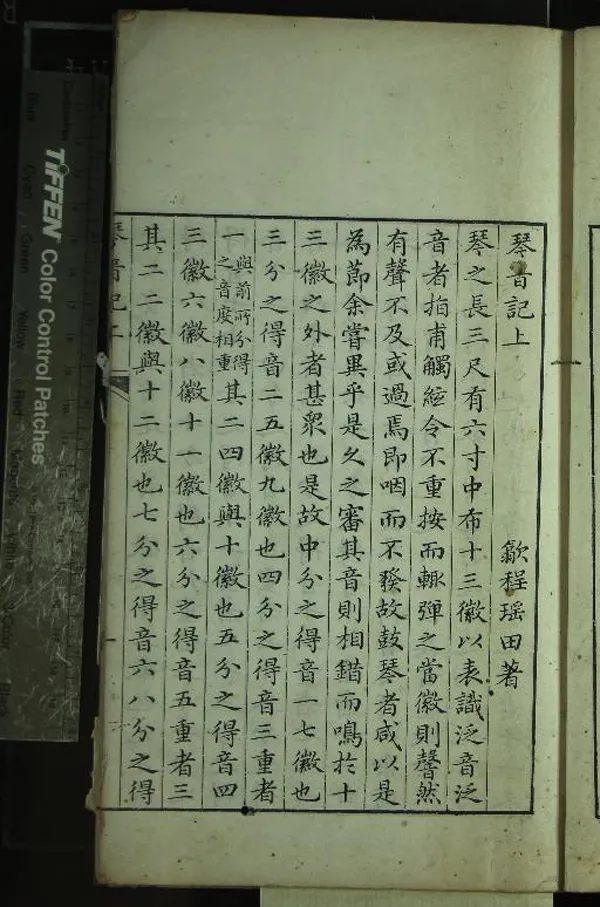 琴音記上 歙程瑶田著
琴之長三尺有六寸中布十三徽以表識泛音泛
音者指甫觸絃令不重按而輒彈之當徽則罄然
有聲不及或過焉即咽而不發故鼓琴者咸以是
為節余嘗異乎是久之審其音則相錯而鳴於十
三徽之外者甚衆也是故中分之得音一七徽也
三分之得音二五徽九徽也四分之得音三重者
一與前所分得之音度相重其二四徽與十徽也五分之得音四
三徽六徽八徽十一徽也六分之得音五重者三
其二二徽與十二徽也七分之得音六八分之得
琴音記上
TIFFEN Color Control Patches
Blue
Cyan
Green
Yellow
Red